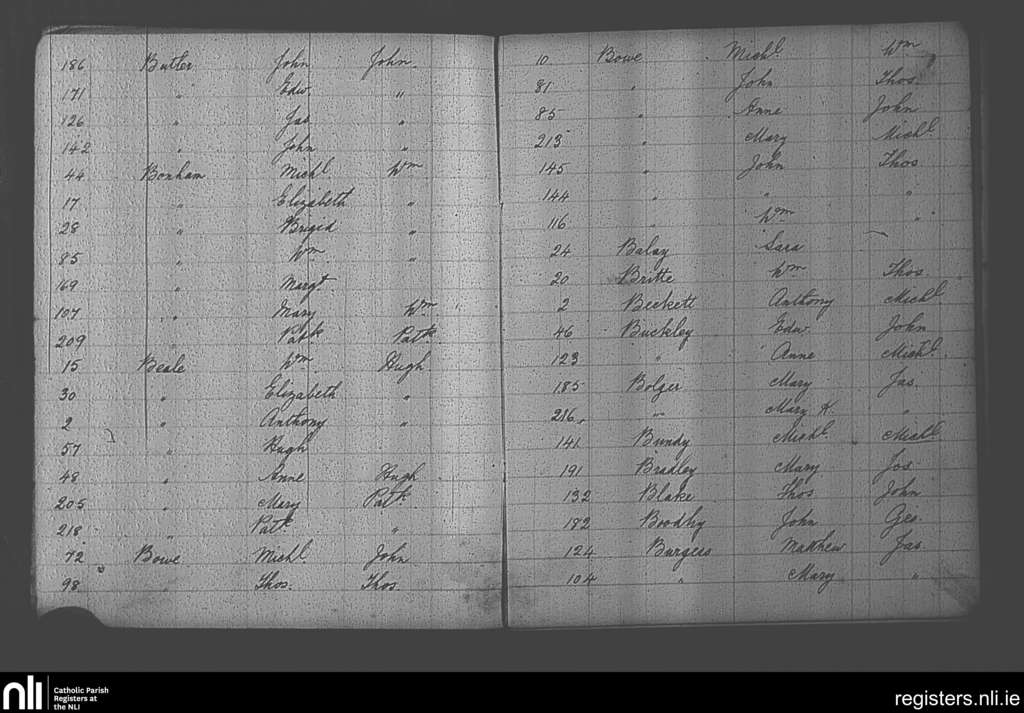 186 Butler John John
171 " Edw. "
126 " Jas "
142 " John "
44 Bonham Michl Wm
17 " Elizabeth "
28 " Brigid "
85 " Wm "
169 " Margt
107 " Mary Wm
209 Patk Patk
15 Beale Wm Hugh
30 " Elizabeth "
2 " Anthony "
57 " Hugh
48 " Anne Hugh
205 " Mary Patk
218 " Patk "
72 Bowe Michl. John
98 " Thos. Thos.
10 Bowe Michl. Wm
81 " John Thos
85 " Anne John
213 " Mary Michl
145 " John Thos
144 " " "
116 " Wm "
24 Balay Sara
20 Britte Wm Thos.
2 Beckett Anthony Michl
46 Buckley Edw. John
123 " Anne Michl.
185 Bolger Mary Jas.
216 " Mary K. "
141 Bundy Michl. Michl
191 Bradley Mary Jos
132 Blake Thos John
182 Boodhy John Geo.
124 Burgess Matthew Jas
104 " Mary "
nli Catholic Parish
Registers at
the NLI
registers.nli.ie